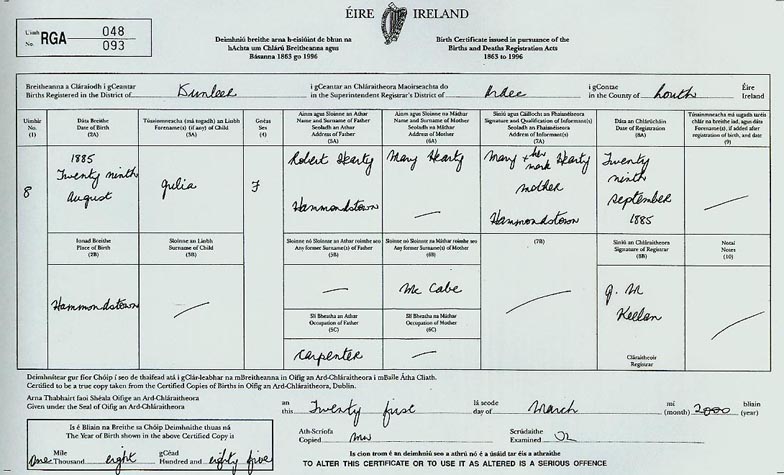 ÉIRE IRELAND
Uimh
No. RGA 048
093
Deimhniú breithe arna h-eisiúint de bhun na
hAchta um Chlárú Breitheanna agus
Básanna 1863 go 1996
Birth Certificate issued in pursuance of the
Births and Deaths Registration Acts
1863 to 1996
Breitheanna a Cláraíodh i gCeantar
Births Registered in the District of Dunleer
i gCeantar an Chláraitheora Maoirseachta do
in the Superintendent Registrar's District of Ardee
i gContae
in the County of Louth
Éire
Ireland
Uimhir
No.
(1)
Dáta Breithe
Date of Birth
(2A)
Túsainmneacha (má tugadh) an Linbh
Forename(s) (if any) of Child
(3A)
Gnéas
Sex
(4)
Ainm agus Sloinne an Athar
Name and Surname of Father
Seoladh an Athar
Address of Father
(5A)
Ainm agus Sloinne na Máthar
Name and Surname of Mother
Seoladh na Máthar
Address of Mother
(6A)
Síniú agus Cáilíocht an Fhaisnéiseora
Signature and Qualification of Informant(s)
Seoladh an Fhaisnéiseora
Address of Informant(s)
(7A)
Dáta an Chlárúcháin
Date of Registration
(8A)
Túsainmneacha má tugadh tar éis
chlár na breithe iad, agus dáta
Forename(s), if added after
registration of birth, and date
(9)
8
1885
Twenty ninth
August
Julia
F
Robert Hearty
Hammondstown
Mary Hearty
—
Mary + her mark Hearty
mother
Hammondstown
Twenty
ninth
September
1885
Ionad Breithe
Place of Birth
(2B)
Sloinne an Linbh
Surname of Child
(3B)
Sloinne nó Sloinnte an Athar roimhe seo
Any former Surname(s) of Father
(5B)
Sloinne nó Sloinnte na Máthar roimhe seo
Any former Surname(s) of Mother
(6B)
(7B)
Síniú an Chláraitheora
Signature of Registrar
(8B)
Nótaí
Notes
(10)
Hammondstown
—
Mc Cabe
Slí Bheatha an Athar
Occupation of Father
(5C)
Slí Bheatha na Máthar
Occupation of Mother
(6C)
Carpenter
—
Cláraitheoir
Registrar
Deimhnítear gur fíor Chóip í seo de thaifead atá i gClár-leabhar na mBreitheanna in Oifig an Ard-Chláraitheora i mBaile Átha Cliath.
Certified to be a true copy taken from the Certified Copies of Births in Oifig an Ard-Chláraitheora, Dublin.
Arna Thabhairt faoi Shéala Oifige an Ard-Chláraitheora
Given under the Seal of Oifig an Ard-Chláraitheora
an
this Twenty first
lá seode
day of March
mí
(month) 2000
bliain
(year)
Is é Bliain na Breithe sa Chóip Deimhnithe thuas ná
The Year of Birth shown in the above Certified Copy is
Míle
One Thousand eight
gCéad
Hundred and eighty five
Ath-Scríofa
Copied
Scrúdaithe
Examined
Is cion trom é an deimhniú seo a athrú nó é a úsáid tar éis a athraithe
TO ALTER THIS CERTIFICATE OR TO USE IT AS ALTERED IS A SERIOUS OFFENCE